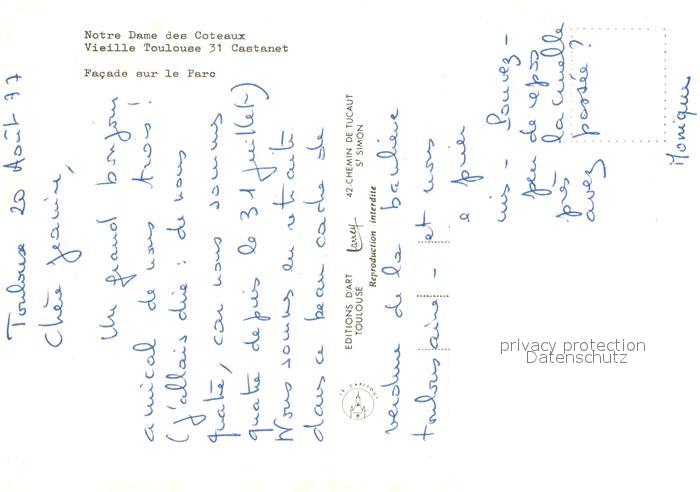 Notre Dame des Coteaux
Vieille Toulouse 31 Castanet
Façade sur le Parc
Toulouse 20 Août 77
Chère Jeanine,
Un grand bonjour
amical de nous trois !
(j'allais dire : de nous
quatre, car nous sommes
quatre depuis le 31 juillet)
Nous sommes en retraite
dans ce beau cadre de
verdure de la banlieue
toulousaine - et nous
prier
Pouvez-
peu de repos
la
près
avez
passée ?
Monique
EDITIONS D'ART
TOULOUSE
Larrey
42, CHEMIN DE TUCAUT
ST SIMON
Reproduction interdite
LE CAPITOUL
privacy protection
Datenschutz